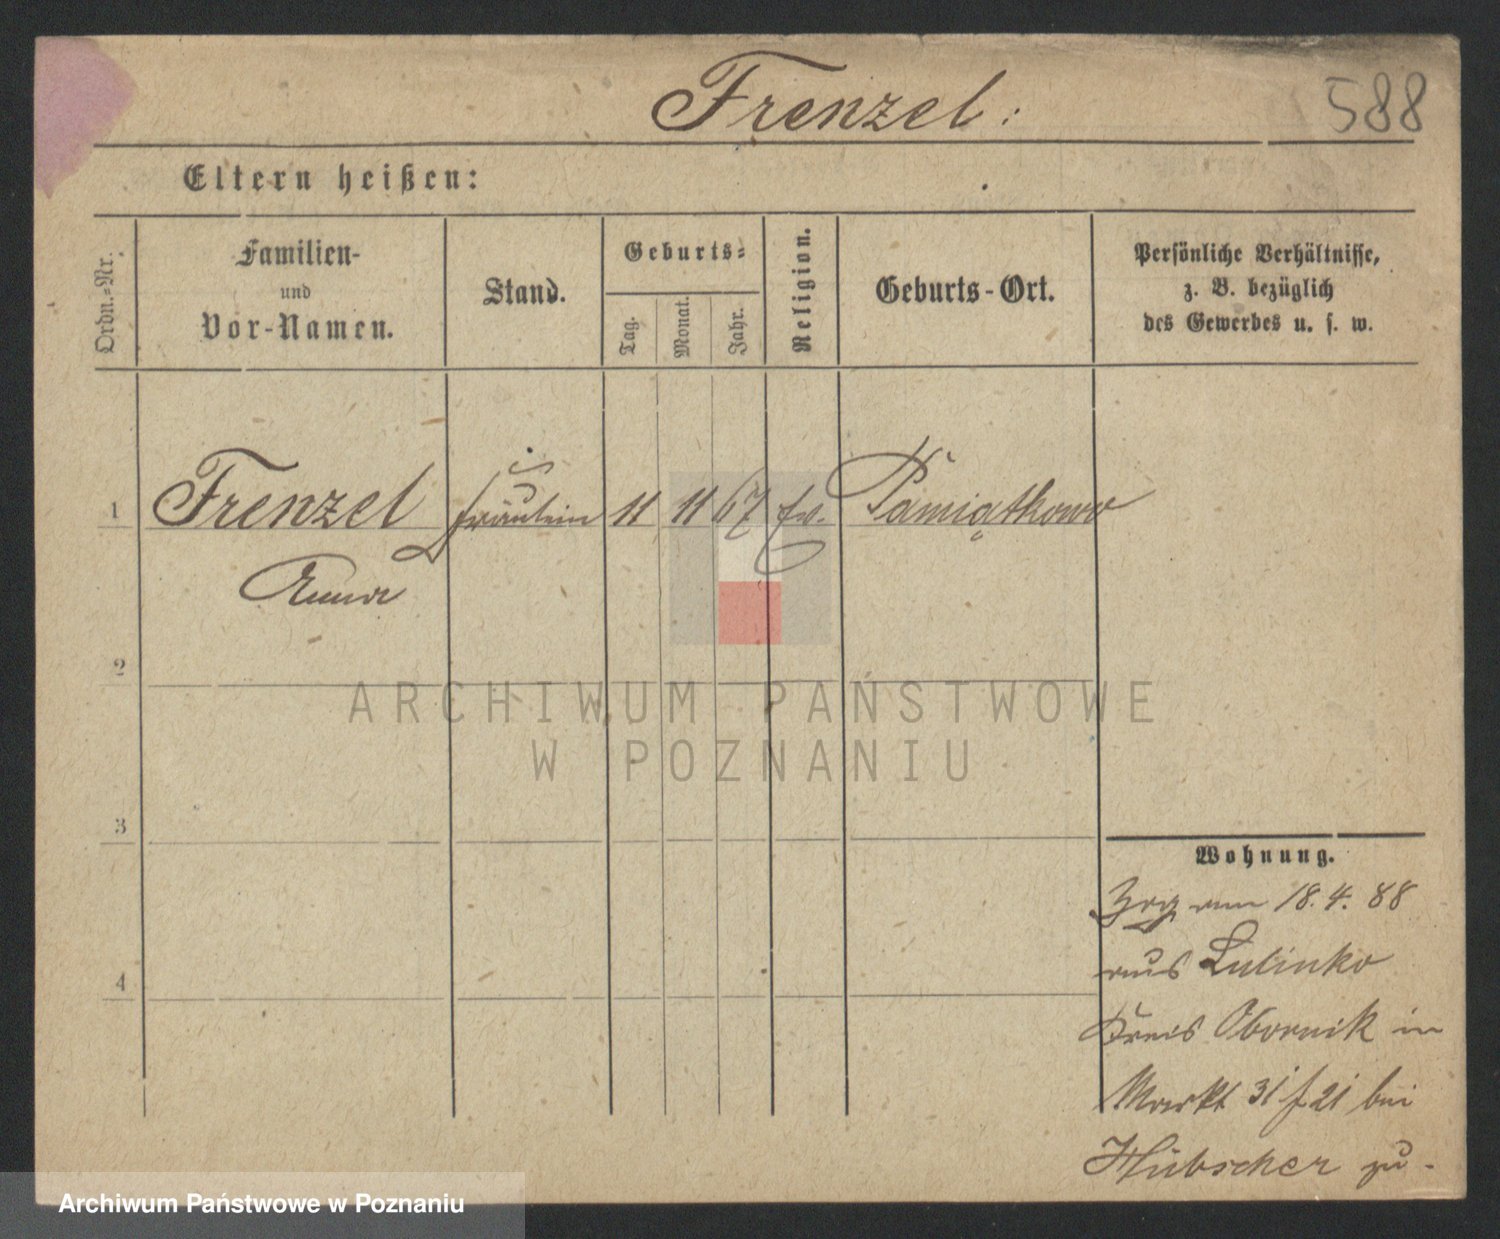 Frenzel:
588
Eltern heißen:
Ordn.-Nr.
Familien-
und
Vor-Namen.
Stand.
Geburts-
Tag.
Monat.
Jahr.
Religion.
Geburts-Ort.
Persönliche Verhältnisse,
z. B. bezüglich
des Gewerbes u. s. w.
1 Frenzel Fräulein 11 11 67 ev. Pamiątkowo
Anna
2
ARCHIWUM PAŃSTWOWE
W POZNANIU
3
Wohnung.
Zog am 18.4.88
aus Lulinko
4
Kreis Obornik in
Markt 31 bei
Hübscher zu.
Archiwum Państwowe w Poznaniu